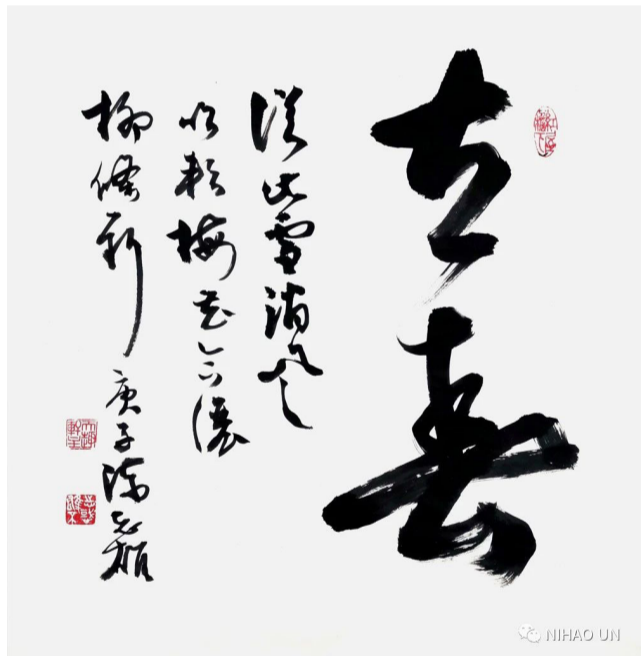 立春
從此雪消風
自軟梅花合讓
柳條新
庚子陳志
NIHAO UN